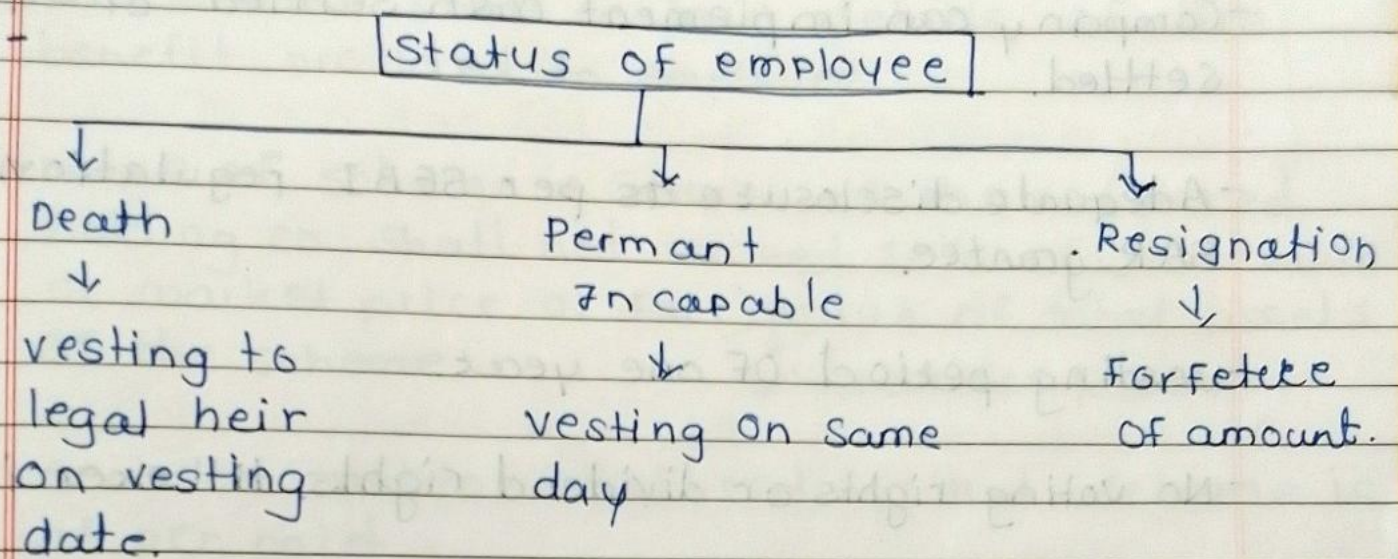 Status of employee
Death
vesting to
legal heir
on vesting
date.
Permant
Incapable
vesting on same
day
Resignation
Forfeteee
of amount.